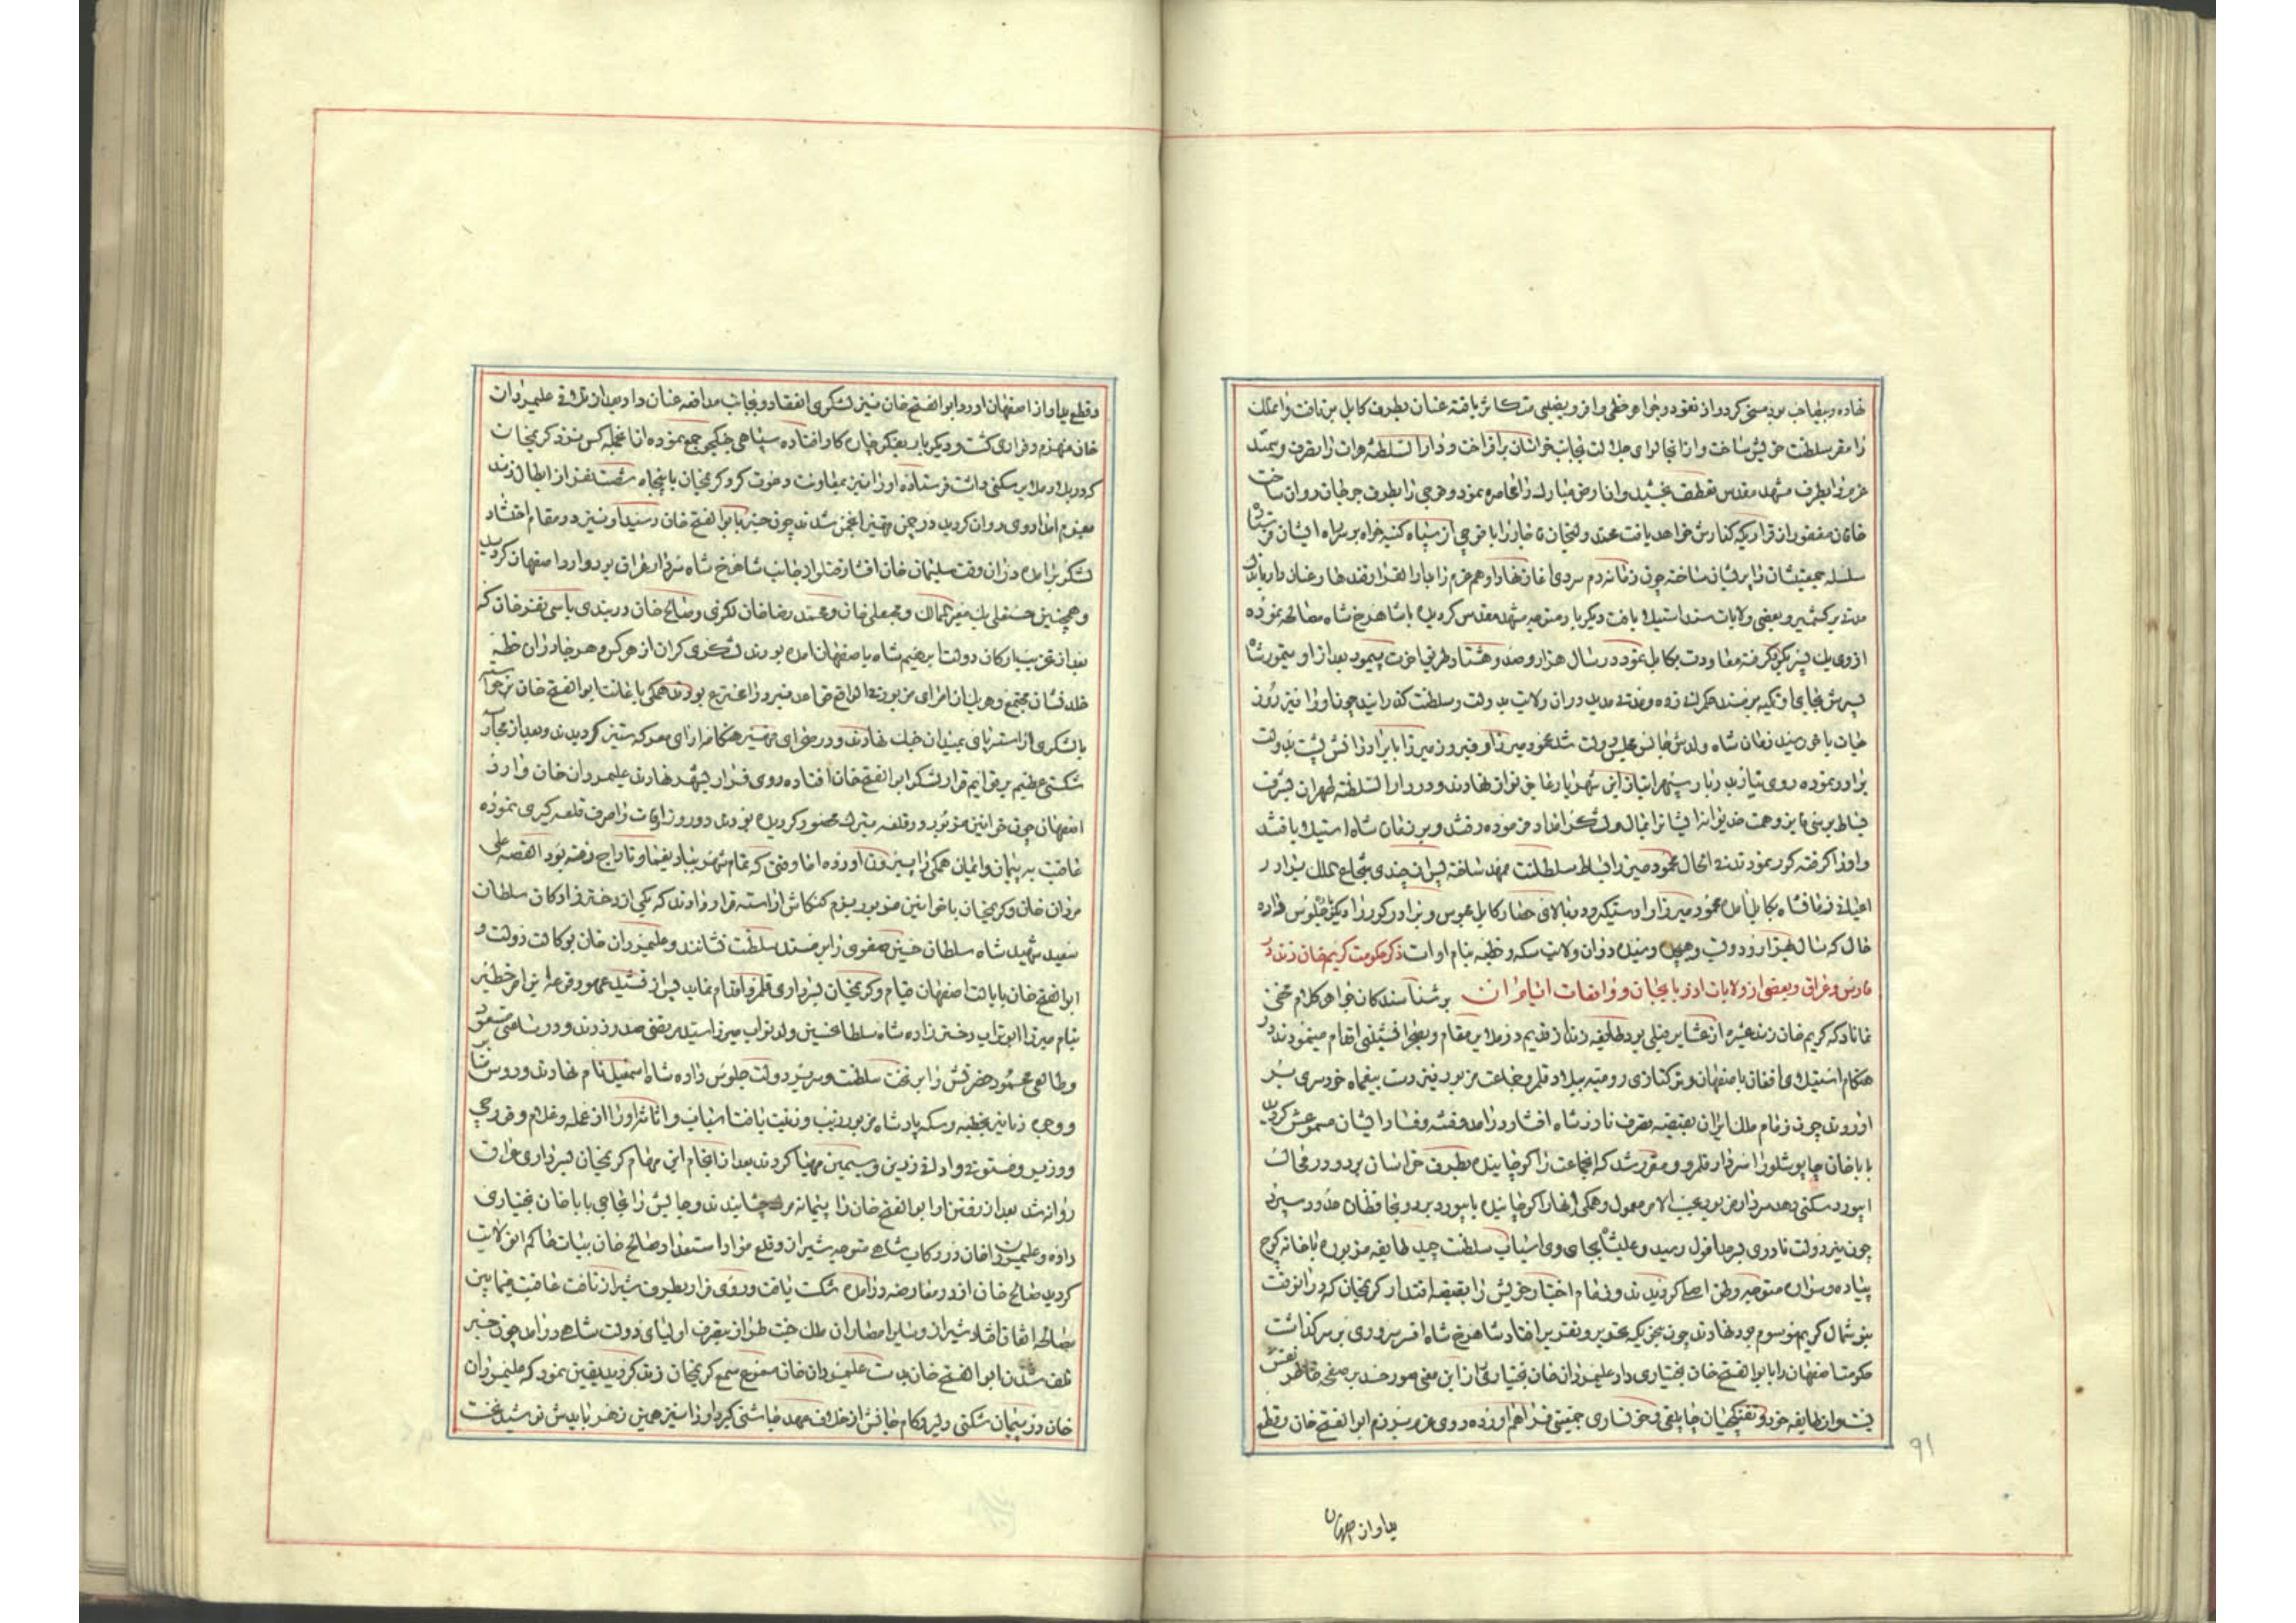 نهاده و بیضاحب بود مسخر کرد و از نقود و جواهر حظی وافر و نصیبی متکاثر یافته عنان بطرف کابل بر تافت و آنملک
را مقر سلطنت خویش ساخت و از آنجا لوای جلالت بجانب خراسان برافراخت و دارالسلطنه هرات را بتصرف
عزم را بطرف مشهد مقدس تعطف بخشید و آن ارض مبارک را محاصره نمود و فوجی را بطرف روان ساخت
خاقان مغفور از قراریکه گذارش خواهد یافت محمد ولیخان قاجار را با فوجی از سپاه کینه خواه بر سر راه ایشان فرستاد
سلسله جمعیتشان را پریشان ساخته چون زمانه دم سردی آغاز نهاد او هم عزم را بدارالقرار قندهار عنان داد
مدتی بر کشمیر و بعضی ولایات سند استیلا یافت و دیگر بار متوجه مشهد مقدس گردیده با شاهرخ شاه مصالحه نموده
از وی یک پسر بگروگرفته معاودت بکابل نمود در سال هزار و صد و هشتاد طریق آخرت پیمود بعد از او تیمور شاه
پسرش بجای او تکیه بر مسند حکمرانی زده و مدتی مدید در آن ولایت بدولت و سلطنت گذرانید چون او را نیز روز
حیات باخر رسید زمان شاه ولدش جانوعلیس دولت شد محمود میرزا و فیروز میرزا برادرانش پشت بدولت
برادر نموده روی نیاز بدربار سپهر امتیاز این شهریار عاجز نواز نهادند و در دارالسلطنه طهران بشرف
بساط بوسی فایز و همت خدیوانه ایشانرا بمال و لشکر امداد فرموده رفتند و بر زمان شاه استیلا یافتند
و او را گرفته کور نمودند الحال محمود میرزا بساط سلطنت ممهد ساخته پس از چندی شجاع الملک برادر
اعیانی زمانشاه بکابل آمده محمود میرزا را دستگیر و در بالای حصار کابل محبوس و برادر کور را دیگر جلوس داده
حال که سال هزار و دویست و چهل رسیده در آن ولایت سکه و خطبه بنام او است ذکر حکومت کریم خان زند در
فارس و عراق و بعضی از ولایات آذربایجان و واقعات آن ایام بر شناسندگان جواهر کلام مخفی
نماناد که کریم خان زند عشیره از عشایر فیلی بود طایفه زند از قدیم در ملایر مقام و بصحرا نشینی قیام مینمودند در
هنگام استیلای افغان باصفهان و ترکتازی رومیه ببلاد قلمرو جماعت مزبور نیز دست بیغما و خودسری بر
آوردند چون زمام ملک ایران بقبضه تصرف نادر شاه افشار در آمد و فتنه و فساد ایشان مسموعش گردید
بابا خان چاپوشلو را سردار قلمرو و مقرر شد که آنجماعت را کوچانیده بطرف خراسان برد و در محال
ابیورد سکنی دهد سردار مزبور بحسب الامر معمول و همگی آنها را کوچانیده بابیورد برد و بمحافظان حدود سپرد
چون نیر دولت نادری بدرجه افول رسید و علیشاه بجای وی اسباب سلطنت چید طایفه مزبوره با خانه کوچ
پیاده و سواره متوجه وطن اصلی گردیدند و زمام اختیار خویش را بقبضه اقتدار کریمخان که در آنوقت
بتوشمال کریم موسوم بود نهادند چون بنحویکه بتحریر و تقریر افتاد شاهرخ شاه افسر سروری بر سر گذاشت
حکومت اصفهان را بابوالفتح خان بختیاری داد علیمردان خان بختیاری از این معنی صور حسد بر صفحه خاطر نقش
بست و از طایفه خود و تفنگچیان چاپلقی و خونساری جمعیتی فراهم آورده روی عزم برزم ابوالفتح خان و قطع
بیداد از اصفهان
91
و قطع بیداد از اصفهان آورد ابوالفتح خان نیز لشکری انعقاد و بجانب مدافعه عنان داد بعد از تلاقی علیمردان
خان منهزم و فراری گشت و دیگر باره بفکر چاره کار افتاده سپاهی جنگجو جمع نموده از آنجمله کس نزد کریمخان
که در بلاد ملایر سکنی داشت فرستاده او را نیز بمعاونت دعوت کرد کریمخان با پنجاه شصت نفر از ابطال زند
بعزم امداد وی روان گردید در چمن انجمن شدند چون خبر بابوالفتح خان رسید او نیز در مقام احتشاد
لشکر بر آمده در آن وقت سلیمان خان افشار قتلو از جانب شاهرخ شاه سردار عراق بود وارد اصفهان گردید
و همچنین حسنعلی بیک معیرالممالک و محمد رضا خان لکزی و صالح خان دربندی با سی نفر خان که
بعد از تخریب ارکان دولت ابرهیم شاه باصفهان آمده بودند لشکری گران از هر کس و هر جا در آن خطه
خلد نشان مجتمع و هر یک از امرای مزبور قواعد نبرد را مخترع بودند همگی باعانت ابوالفتح خان برخواسته
با لشکری آراسته پای بمیدان جنگ نهادند و در صحرای هنگامه آرای معرکه ستیز گردیدند و بعد از محاربه
شکستی عظیم بر قوایم قرار لشکر ابوالفتح خان افتاده روی فرار بشهر نهادند علیمردان خان وارد
اصفهان چون خوانین مزبور در قلعه تبرک محصور گردیده بودند دو روز اوقات را صرف قلعه گیری نموده
عاقبت به پیمان و ایمان همگی را بیرون آورده اما وقتی که تمام شهر بباد یغما و تاراج رفته بود القصه علی
مردان خان و کریمخان با خوانین مزبور بزم کنکاش آراسته قرار دادند که یکی از دختر زادگان سلطان
سعید شهید شاه سلطان حسین صفوی را بر مسند سلطنت نشانند و علیمردان خان بوکالت دولت و
ابوالفتح خان بایالت اصفهان قیام و کریمخان بسرداری قلمرو اقدام نماید پس از تشیید عهود قرعه این امر خطیر
بنام میرزا ابوتراب دختر زاده شاه سلطان حسین ولد نواب میرزا سید مرتضی صدر زدند و در ساعتی مسعود
و طالعی محمود حضرتش را بر تخت سلطنت و سریر دولت جلوس داده شاه اسمعیل نام نهادند و رؤس منابر
و وجوه دنانیر بخطبه و سکه پادشاه مزبور زیب و زینت یافت اسباب و اثاثه او را از عمله و غلام و قورچی
و وزیر و مستوفی و ادات زرین و سیمین مهیا کردند بعد از انجام این مهام کریمخان بسرداری عراق
روانه شد بعد از رفتن او ابوالفتح خان را پیمانه مرگ چشانیدند و جایش را بحاجی بابا خان بختیاری
داده و علیمردان خان در رکاب شاهی متوجه شیراز و قلع مواد استعداد صالح خان بیات حاکم آن ولایت
گردید صالح خان از در معارضه در آمده شکست یافت و روی فرار بطرف شیراز تافت عاقبت فیمابین
مصالحه اتفاق افتاد شیراز و سایر امصار آن ملک جنت طراز بتصرف اولیای دولت شاهی در آمد چون خبر
تلف شدن ابوالفتح خان بدست علیمردان خان مقروع سمع کریمخان زند گردید یقین نمود که علیمردان
خان در پیمان شکنی دلیر و کام جانش از خلاف عهد چاشنی گیر و او را نیز همین زهر باید نوشید نخست